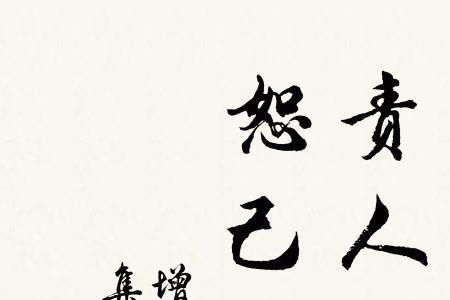 责人
恕己
增
集